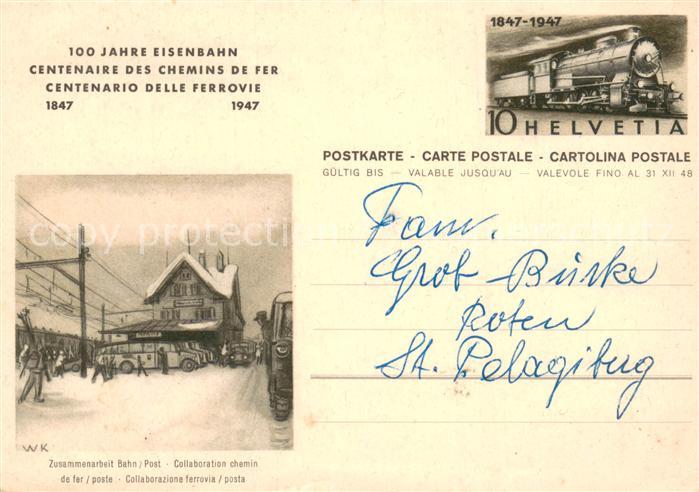 100 JAHRE EISENBAHN
CENTENAIRE DES CHEMINS DE FER
CENTENARIO DELLE FERROVIE
1847 1947
1847-1947
10 HELVETIA
POSTKARTE - CARTE POSTALE - CARTOLINA POSTALE
GÜLTIG BIS — VALABLE JUSQU'AU — VALEVOLE FINO AL 31 XII 48
copy protection
Fam.
Grob-Bürke
Roten
St. Pelagiberg
WK
Zusammenarbeit Bahn / Post · Collaboration chemin
de fer / poste · Collaborazione ferrovia / posta